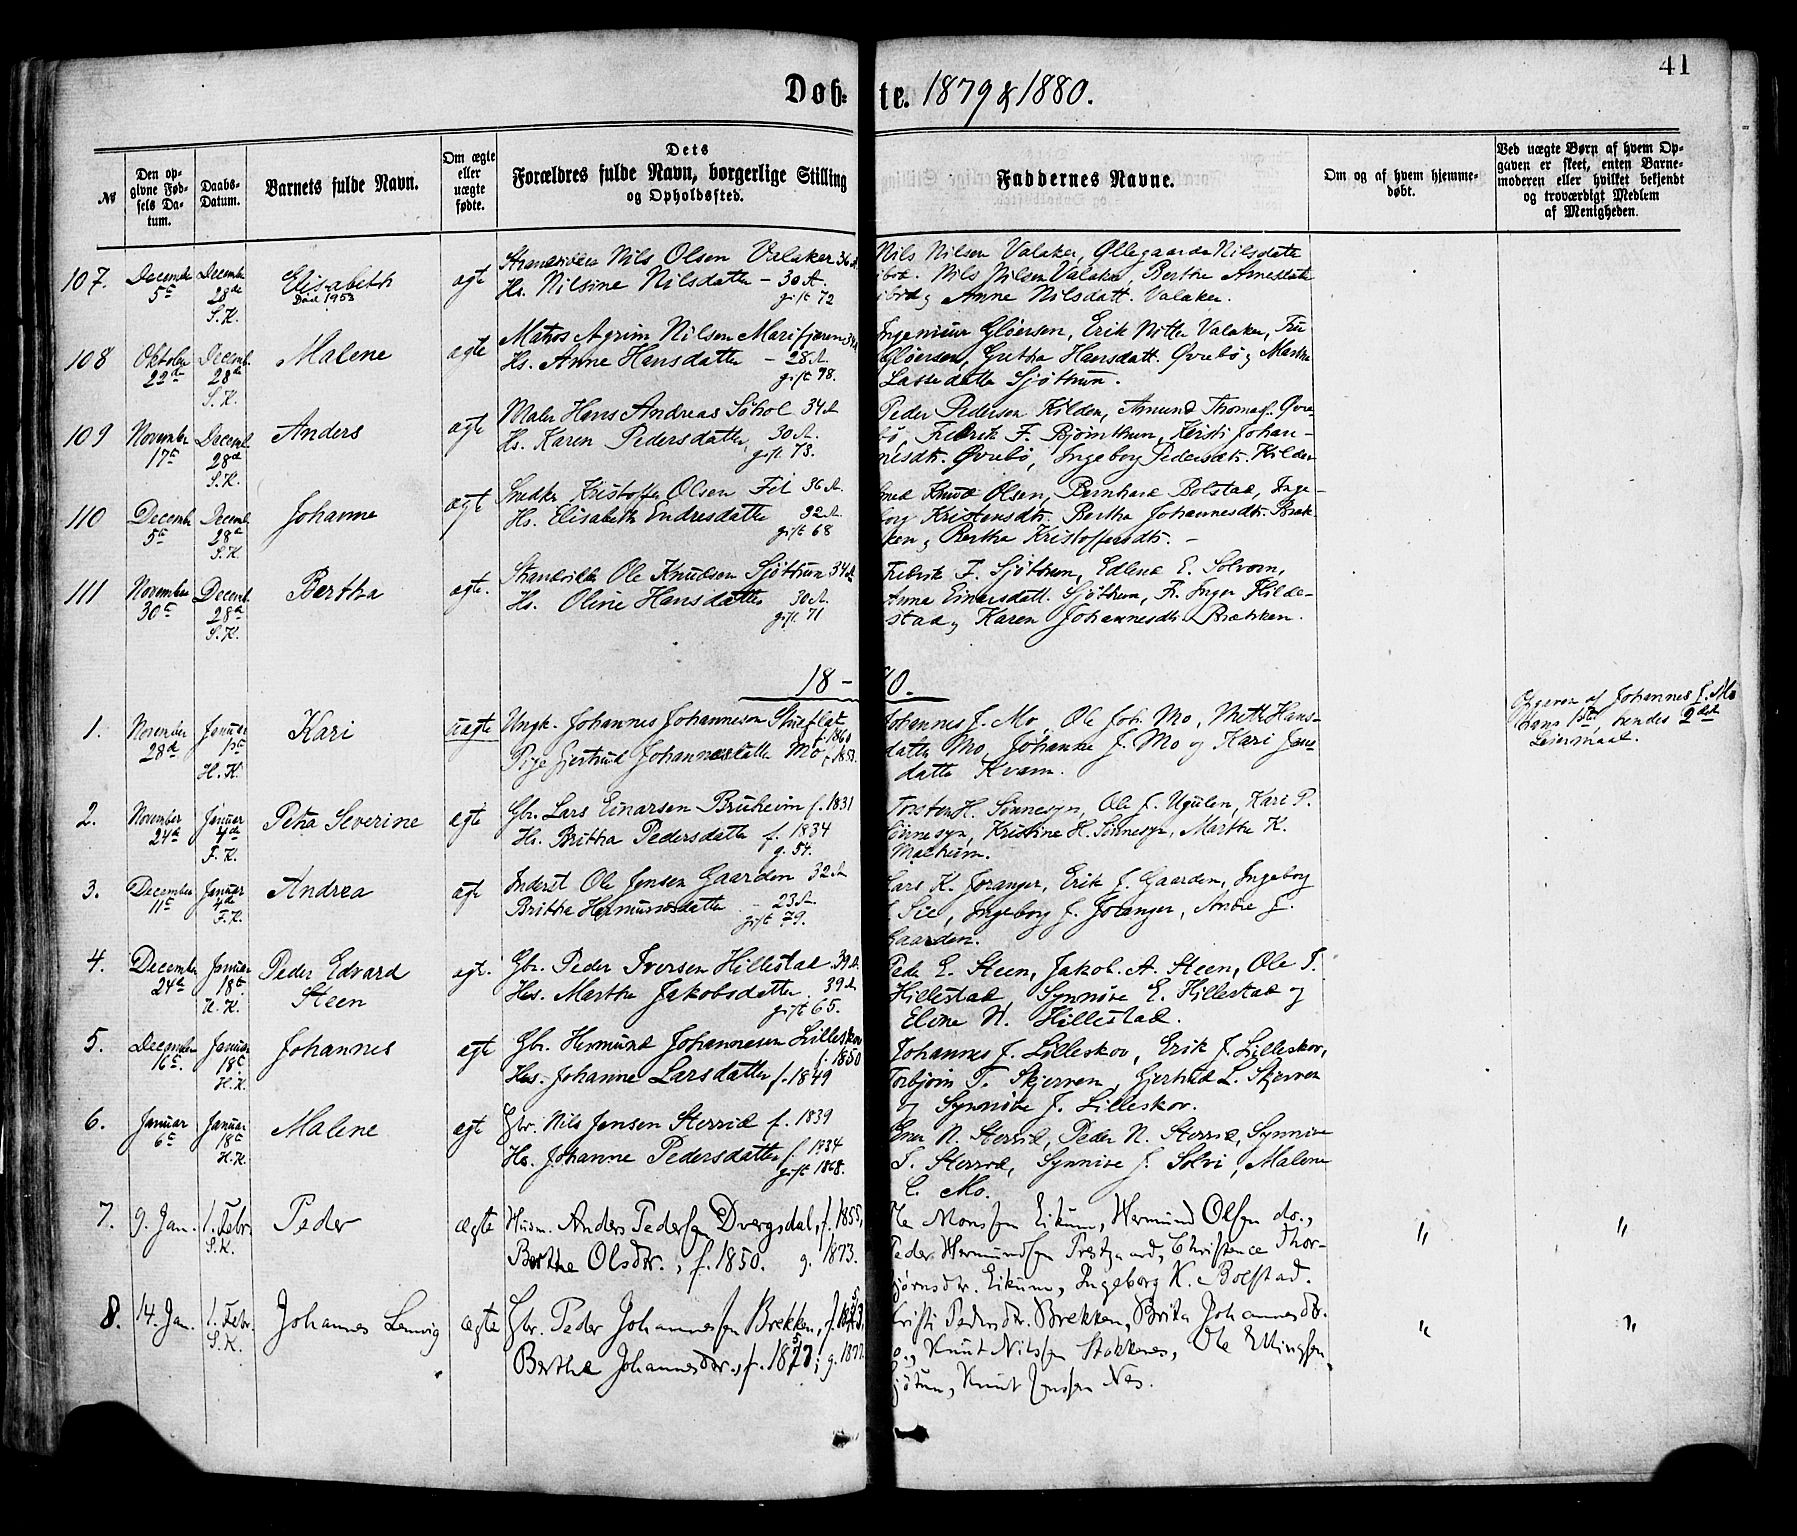 41
Døb- te. 1879 & 1880.
№
Den opgivne Fødsels Datum.
Daabs-Datum.
Barnets fulde Navn.
Om ægte eller uægte fødte.
Dets Forældres fulde Navn, borgerlige Stilling og Opholdssted.
Faddernes Navne.
Om og af hvem hjemmedøbt.
Ved uægte Børn af hvem Opgaven er skeet, enten Barnemoderen eller hvilket bekjendt og troværdigt Medlem af Menigheden.
107. December 5te December 28de S.K. Elisabeth Død 1953 ægte Strandsidder Nils Olsen Valaker 36 A.
Hs. Nilsine Nilsdatter - 30 A.
gift 72
Nils Nilsen Valaker, Øllegaarda Nilsdatter
ibid. Nils Nilsen Valaker, Berthe Arnesdatt
ibid og Anne Nilsdatt. Valaker.
108 Oktober 22de Decemb. 28de S.K. Malene ægte Matros Agrim Nilsen Marifjæren
Hs. Anne Hansdatter - 28 A.
gift 78.
Ingeniør Gløersen, Erik Valaker, Fru
Gløersen, Gretha Hansdatt. Øvrebø og Marthe
Lassedatter Sjøtun.
109 November 17de Decemb. 28de S.K. Anders ægte Maler Hans Andreas 34 A
Hs. Karen Pedersdatter 30 A.
gift 73.
Peder Pedersen Kilden, Amund Thomas. Øvre-
bø, Fredrik F. Bjørnthun, Kersti Johan-
nesdtr. Øvrebø, Ingeborg Pedersdtr. Kilden
110 Decemb. 5te Decemb. 28de S.K. Johanne ægt Snedker Kristoffer Olsen 36 A.
Hs. Elisabeth Endresdatter 32 A.
gift 68
Smed Knud Olsen, Bernhard Bolstad, Inge-
borg Kristensdtr. Bertha Johannesdtr. Bræk-
ken og Bertha Kristoffersdtr. -
111 November 30te Decemb. 28de S.K. Bertha ægte. Strandsidder Ole Knudsen Sjøthun 34 A
Hs. Oline Hansdatter 30 A.
gift 71
Fredrik F. Sjøthun, Edlend E. Solvorn,
Anna Einarsdatt. Sjøthun, F. Inger Hilde-
stad og Karen Johannesdtr. Brækken.
18 - 80.
1. November 28de Januar 1ste H.K. Kari uægte Ungk. Johannes Johannesen f. 1860
Pige Gjertrud Johannesdatter Mo
Johannes J. Mo, Ole Joh. Mo, Mette Hans-
datter Mo, Johanne J. Mo og Kari
datter Kvam.
Opgaven af Johannes J. Mo
hans 1ste, hendes 2det
Leiermaal.
2. November 24de Januar 4de F.K. Petra Severine ægte Gbr. Lars Einarsen Bruheim f. 1831
Hs. Brithe Pedersdatter f. 1834
g. 54.
Torsten H. Sønnesyn, Ole J. Ugulen, Kari P.
Sønnesyn, Kristine H. Sønnesyn, Marthe K.
3. December 11te Januar 4de F.K. Andrea ægt Inderst Ole Jensen Gaarden 32 A
Britha Hermundsdatter - 23 A.
gift 79.
Lars K. Joranger, Erik J. Gaarden, Ingeborg
Ingeborg J. Joranger, J.
Gaarden.
4. December 24de Januar 18de H.K. Peder Edvard Steen ægt. Gbr. Peder Iversen Hillestad 39 A.
Hs. Marthe Jakobsdatter, 39 A
gift 65.
Peder E. Steen, Jakob A. Steen, Ole T.
Hillestad, Synnøve E. Hillestad og
Eline N. Hillestad.
5. December 16de. Januar 18de H.K. Johannes ægt Gbr. Hermund Johannesen Lilleskov f. 1850
Hs. Johanne Larsdatter f. 1849
Johannes J. Lilleskov, Erik J. Lilleskov,
Torbjørn T. Skjerven, Gjertrud L. Skjerven
og Synnøve J. Lilleskov.
6. Januar 6te Januar 18de H.K. Malene ægt Gbr. Nils Jensen Sterrid f. 1839
Hs. Johanne Pedersdatter f. 1834
gift 1868.
N. Sterrid, Peder N. Sterrid, Synnøve
Sterrid, Synnøve J. Solvi, Malene
Mo.
7. 9. Jan. 1. Febr. S.K. Peder ægte Husm. Anders Pedersen Dvergsdal, f. 1855,
Berthe Olsdtr., f. 1850. g. 1873.
Ole Monssen Eikum, Hermund Olsen do.,
Peder Hermundsen Prestgaard, Christence Thor-
bjørnsdtr. Eikum, Ingeborg K. Bolstad.
" "
8. 14. Jan. 1. Febr. S.K. Johannes Lemvig ægte Gbr. Peder Johannessen Brekken,
Berthe Johannesdtr.
Kristi Pedersdtr. Brekken, Brita Johannesdtr.
do., Knut Nilssen Stokkenes, Ole Ellingsen
Sjøtun, Knut Jenssen Nes.
" "